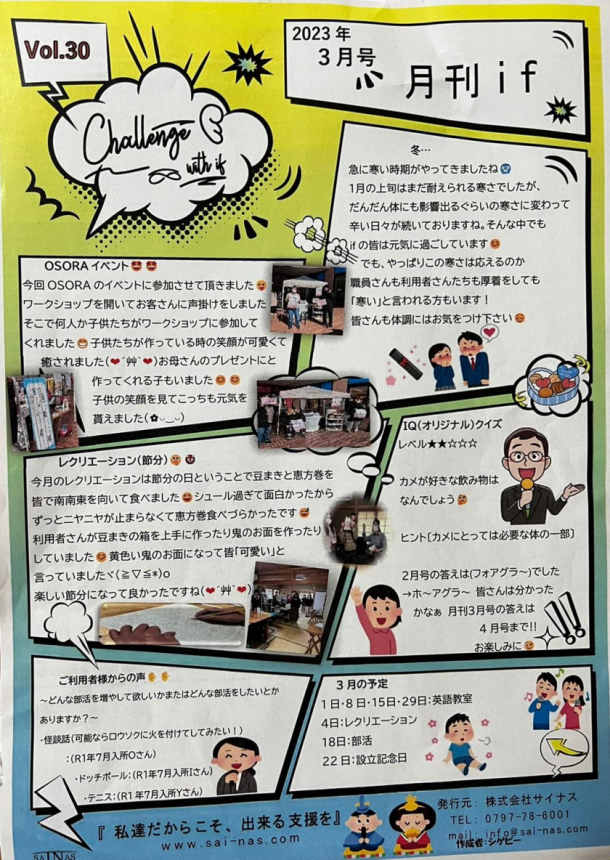 Vol.30
Challenge
with if
2023年
3月号
月刊if
冬…
急に寒い時期がやってきましたね🥶
1月の上旬はまだ耐えられる寒さでしたが、
だんだん体にも影響出るぐらいの寒さに変わって
辛い日々が続いておりますね。そんな中でも
ifの皆は元気に過ごしています😊
でも、やっぱりこの寒さは応えるのか
職員さんも利用者さんたちも厚着をしても
「寒い」と言われる方もいます！
皆さんも体調にはお気をつけ下さい😊
OSORAイベント
今回OSORAのイベントに参加させて頂きました
ワークショップを開いてお客さんに声掛けをしました
そこで何人か子供たちがワークショップに参加して
くれました😁子供たちが作っている時の笑顔が可愛くて
癒されました(❤´艸`❤)お母さんのプレゼントにと
作ってくれる子もいました😊😊
子供の笑顔を見てこっちも元気を
貰えました(✿◡‿◡)
レクリエーション(節分)
今月のレクリエーションは節分の日ということで豆まきと恵方巻を
皆で南南東を向いて食べました😆シュール過ぎて面白かったから
ずっとニヤニヤが止まらなくて恵方巻食べづらかったです😅
利用者さんが豆まきの箱を上手に作ったり鬼のお面を作ったり
していました😊黄色い鬼のお面になって皆「可愛い」と
言っていましたヾ(≧▽≦*)o
楽しい節分になって良かったですね(❤´艸`❤)
IQ(オリジナル)クイズ
レベル★★☆☆☆
カメが好きな飲み物は
なんでしょう🤔
ヒント〔カメにとっては必要な体の一部〕
2月号の答えは(フォアグラ～)でした
→ホ～アグラ～ 皆さんは分かった
かなぁ 月刊3月号の答えは
4月号まで!!
お楽しみに
ご利用者様からの声
～どんな部活を増やして欲しいかまたはどんな部活をしたいとか
ありますか？～
・怪談話(可能ならロウソクに火を付けてしてみたい！)
:(R1年7月入所Oさん)
・ドッチボール:(R1年7月入所Iさん)
・テニス:(R1年7月入所Yさん)
3月の予定
1日・8日・15日・29日:英語教室
4日:レクリエーション
18日:部活
22日:設立記念日
『私達だからこそ、出来る支援を』
www.sai-nas.com
SAINAS
発行元: 株式会社サイナス
TEL: 0797-78-6001
mail: info@sai-nas.com
作成者:シゲピー